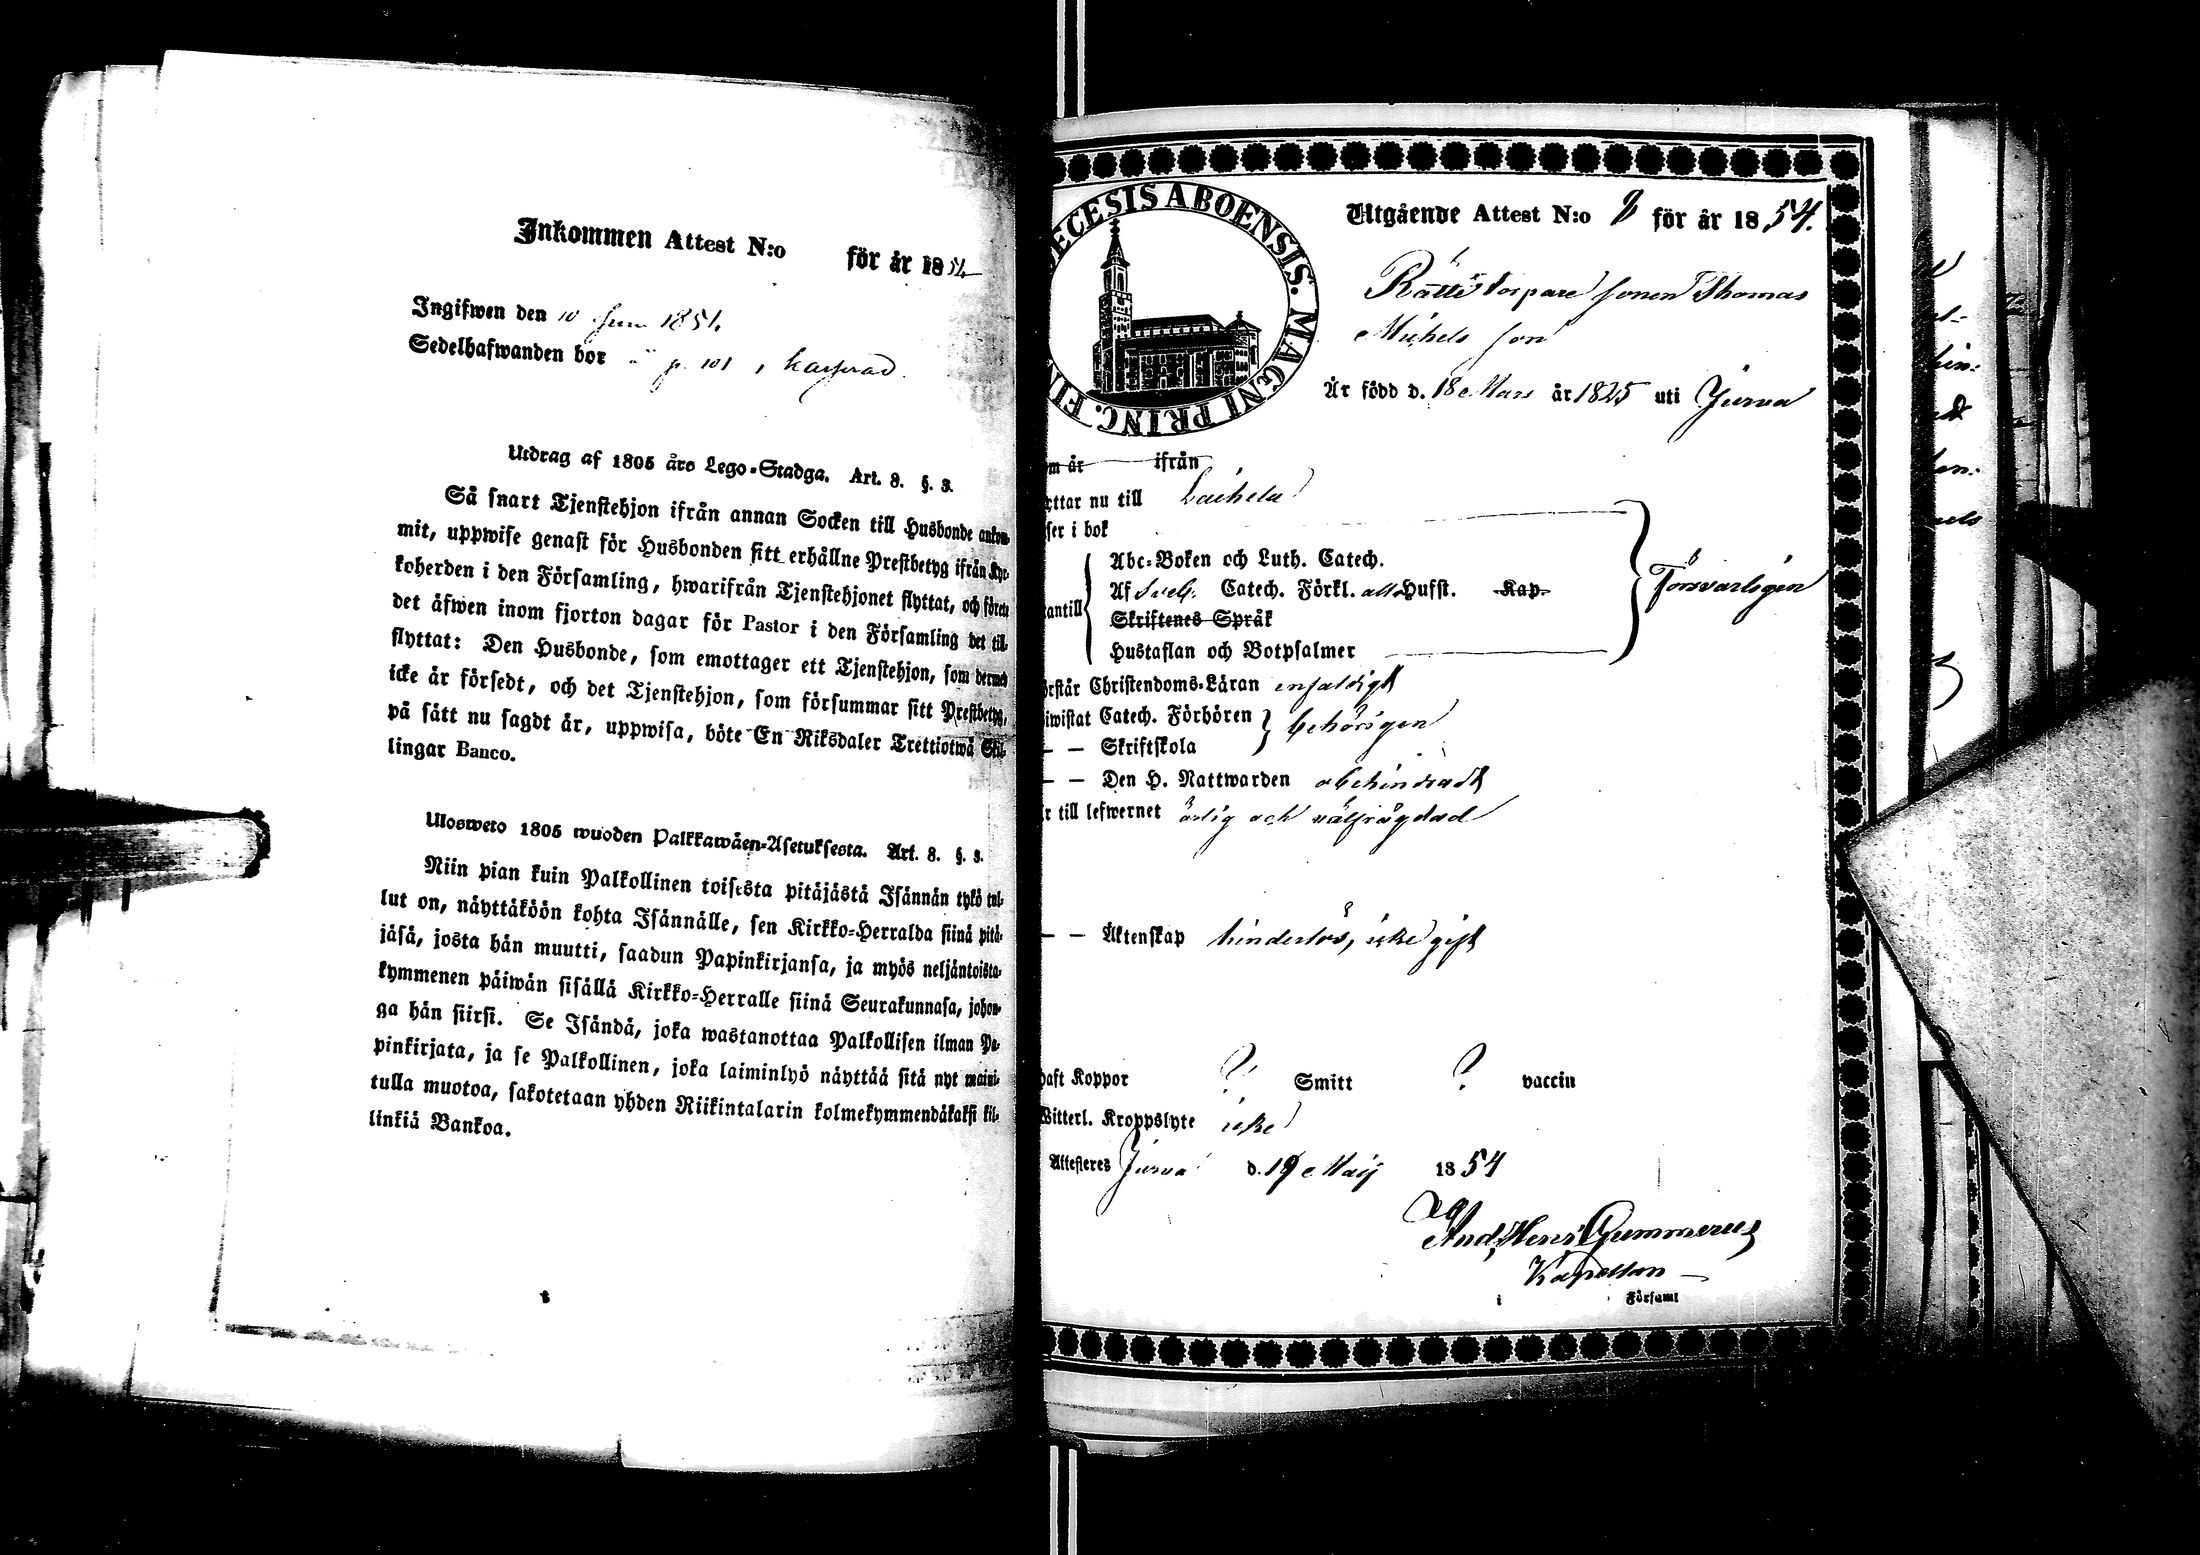 Inkommen Attest N:o för år 1854
Ingifwen den 10 Juni 1854
Sedelhafwanden bor p. 101,
Utdrag af 1805 års Lego-Stadga. Art. 8. §. 3.
Så snart Tjenstehjon ifrån annan Socken till Husbonde ankom-
mit, uppwise genast för Husbonden sitt erhållne Prestbetyg ifrån Kyr-
koherden i den Församling, hwarifrån Tjenstehjonet flyttat, och förete
det äfwen inom fjorton dagar för Pastor i den Församling det till-
flyttat: Den Husbonde, som emottager ett Tjenstehjon, som dermed
icke är försedt, och det Tjenstehjon, som försummar sitt Prestbetyg,
på sätt nu sagdt är, uppwisa, böte En Riksdaler Trettiotwå Skil-
lingar Banco.
Ulosweto 1805 wuoden Palkkawäen-Asetuksesta. Art. 8. §. 3.
Niin pian kuin Palkollinen toisesta pitäjästä Isännän tykö tul-
lut on, näyttäköön kohta Isännälle, sen Kirkko-Herralda siinä pitä-
jäsä, josta hän muutti, saadun Papinkirjansa, ja myös neljäntoista-
kymmenen päiwän sisällä Kirkko-Herralle siinä Seurakunnasa, johon-
ga hän siirsi. Se Isändä, joka wastanottaa Palkollisen ilman Pa-
pinkirjata, ja se Palkollinen, joka laiminlyö näyttää sitä nyt maini-
tulla muotoa, sakotetaan yhden Riikintalarin kolmekymmendäkaksi kil-
linkiä Bankoa.
ECESIS ABOENSIS. MAGNI PRINC. FIN
Utgående Attest N:o 8 för år 1854.
Rättis torpare sonen Thomas
Michels son
Är född d. 18 Mars år 1825 uti Jurva
om år ifrån
yttar nu till Laihela
ser i bok
Abc-Boken och Luth. Catech.
Af Sveb. Catech. Förkl. allt Hufst. Kap.
antill Försvarligen
Skriftenes Språk
Hustaflan och Botpsalmer
örstår Christendoms-Läran enfaldigt
iwistat Catech. Förhören behörigen
— — Skriftskola
— — Den H. Nattwarden obehindradt
r till lefwernet ärlig och välfrägdad
— — Äktenskap hinderlös, icke gift
haft Koppor ? Smitt ? vaccin
Witterl. Kroppslyte icke
Attesteres Jurva d. 19 Maij 1854
And. Henr. Gummerus
Kapellan
i Församl